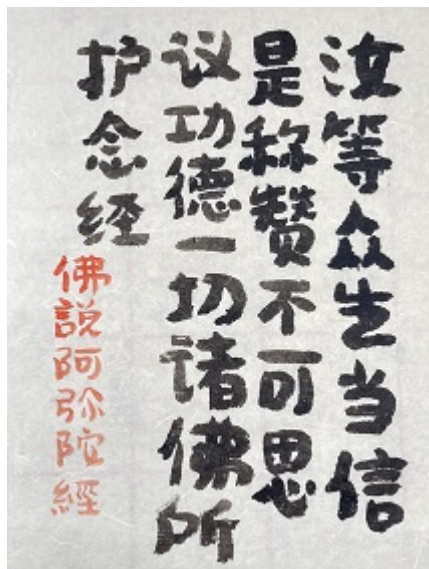 汝等众生当信
是称赞不可思
议功德一切诸佛所
护念经
佛説阿弥陀經